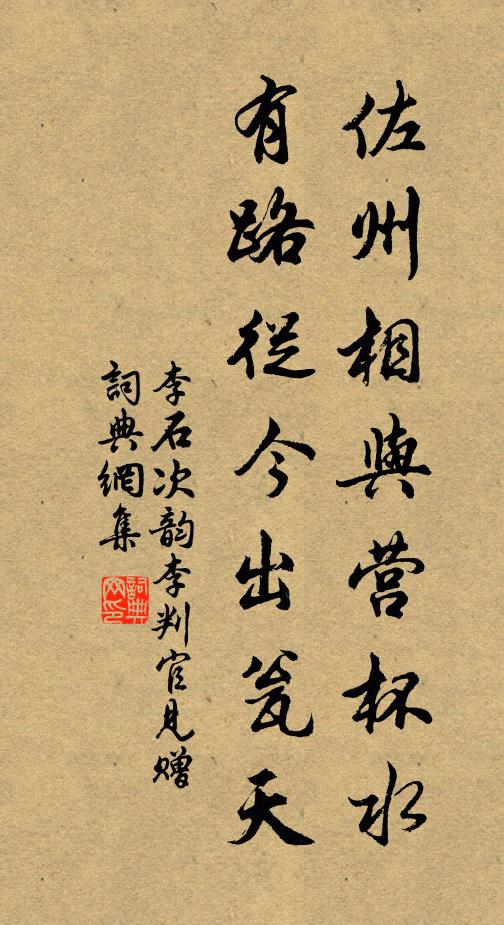 佐州相與营杯水
有路從今出瓮天
李石次韵李判官見赠
詞典網集
詞典网印